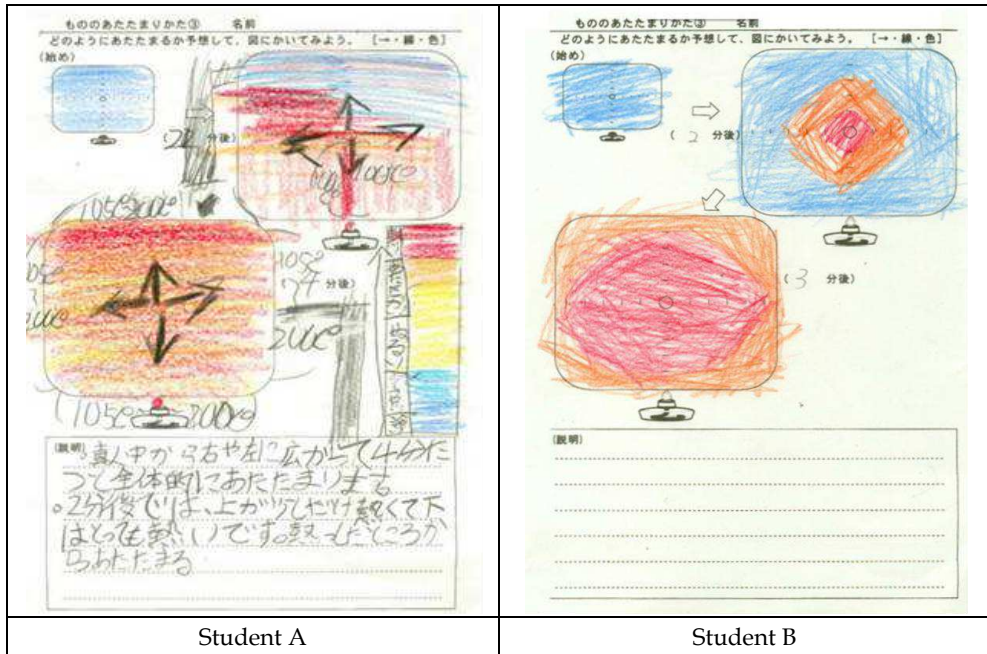 もののあたたまりかた③ 名前
どのようにあたたまるか予想して、図にかいてみよう。 [→・線・色]
(始め)
(2 分後)
100℃
105℃ 200℃
105℃
200℃
(4 分後)
200℃
(105℃ 200℃)
(説明) 真ん中から右や左に広がって4分た
って全体的にあたたまります
・2分後では、上が少しだけ熱くて下
はとても熱いです。熱したところか
らあたたまる
Student A
もののあたたまりかた③ 名前
どのようにあたたまるか予想して、図にかいてみよう。 [→・線・色]
(始め)
(2 分後)
(3 分後)
(説明)
Student B